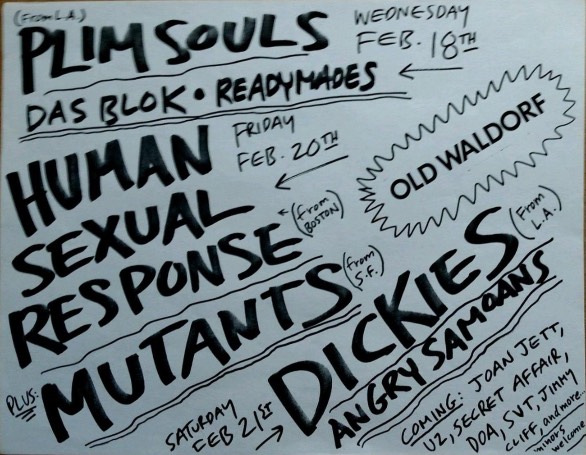 (From L.A.)
PLIMSOULS
WEDNESDAY
FEB. 18TH
DAS BLOK • READYMADES
HUMAN
SEXUAL
RESPONSE
(from
BOSTON)
FRIDAY
FEB. 20TH
OLD WALDORF
PLUS:
MUTANTS
(from
S.F.)
DICKIES
(From
L.A.)
ANGRY SAMOANS
SATURDAY
FEB 21ST
COMING: JOAN JETT,
U2, SECRET AFFAIR,
DOA, SVT, JIMMY
CLIFF, and more...
minors
welcome